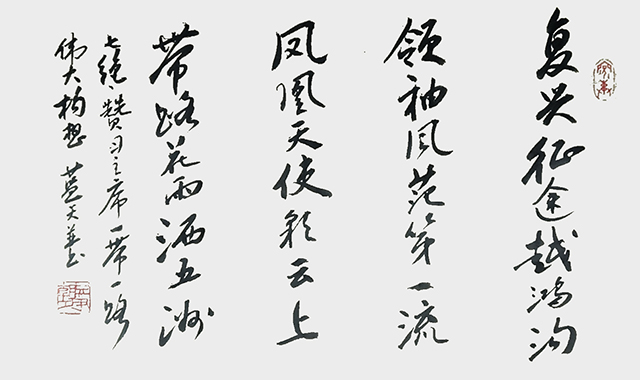 复兴征途越鸿沟
领袖风范第一流
凤凰天使彩云上
带路花雨洒五洲
七绝赞习主席一带一路
伟大构想 蓝天並书